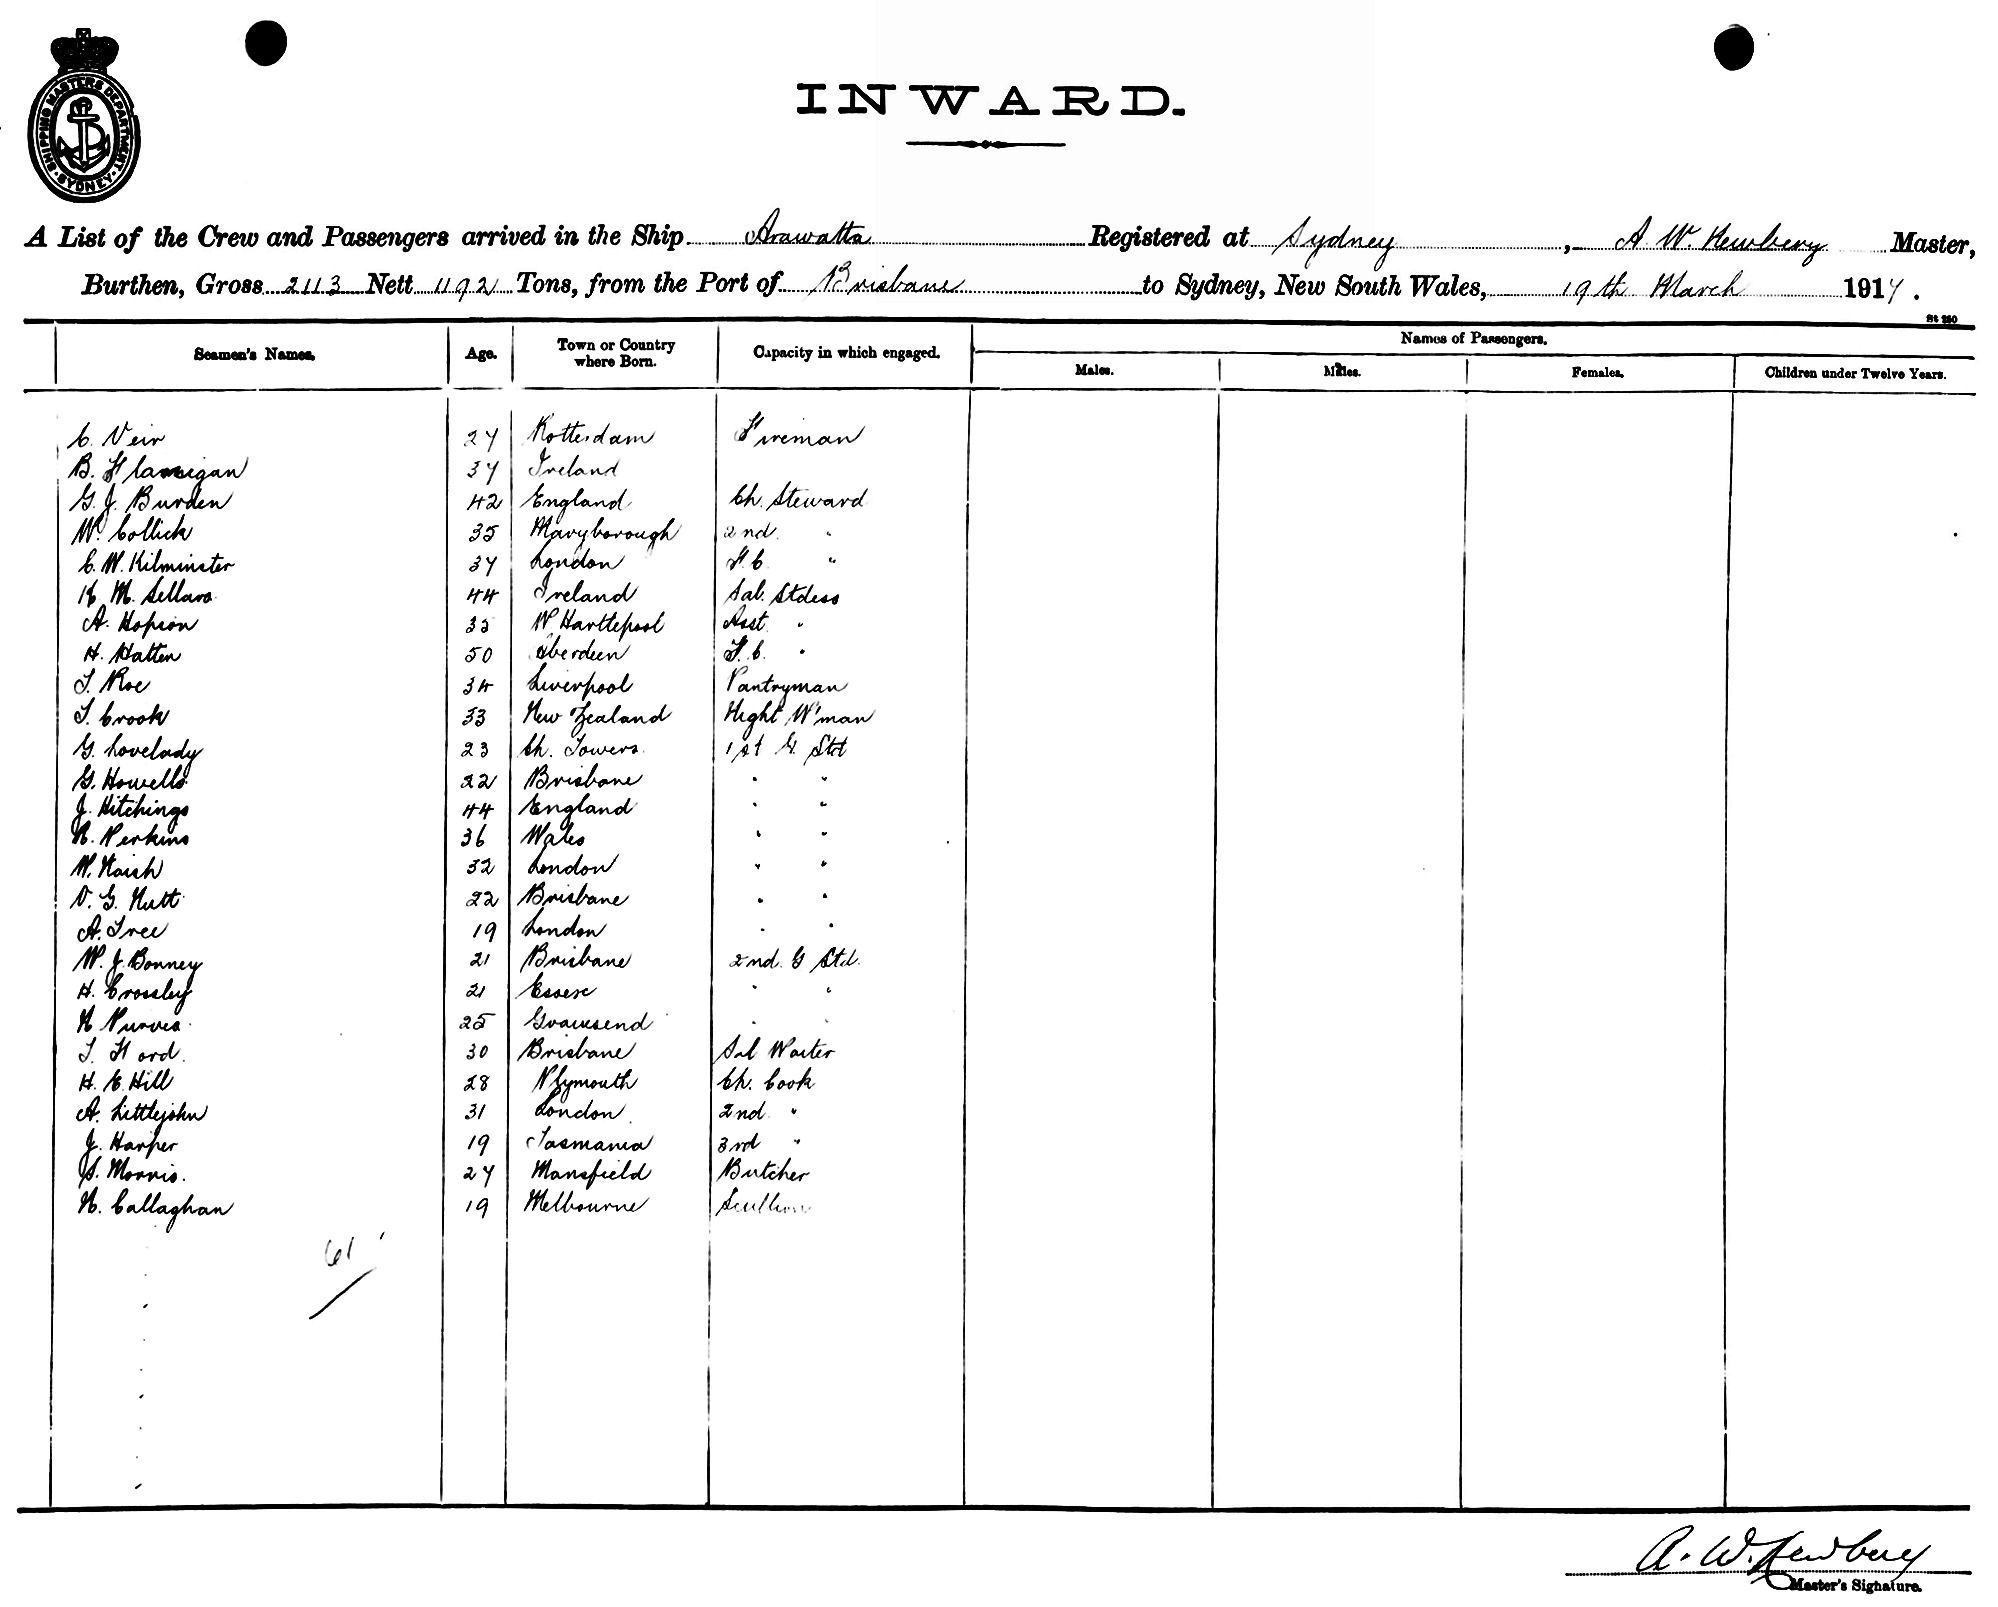 SHIPPING MASTERS DEPARTMENT. SYDNEY
INWARD.
A List of the Crew and Passengers arrived in the Ship Arawatta Registered at Sydney, A. W. Newbery Master,
Burthen, Gross 2113 Nett 1192 Tons, from the Port of Brisbane to Sydney, New South Wales, 19th March 1914.
St 250
Seamen's Names. Age. Town or Country where Born. Capacity in which engaged. Names of Passengers.
Males. Males. Females. Children under Twelve Years.
C. Veir 27 Rotterdam Fireman
B. Flannigan 37 Ireland
G. J. Burden 42 England Ch. Steward
W. Collick 35 Maryborough 2nd "
C. W. Kilminster 37 London F. C. "
K. M. Sellars 44 Ireland Sal. Stdess
A. Hopson 35 W Hartlepool Asst "
H. Hatten 50 Aberdeen F. C. "
T. Roe 34 Liverpool Pantryman
T. Crook 33 New Zealand Night W'man
G. Lovelady 23 Ch. Towers 1st G. Std
G. Howells 22 Brisbane " "
J. Hitchings 44 England " "
R. Perkins 36 Wales " "
W. Naish 32 London " "
V. G. Nutt 22 Brisbane " "
A. Tree 19 London " "
W. J. Bonney 21 Brisbane 2nd. G Std.
H. Crossley 21 Essex " "
R Purves 25 Gravesend " "
T. Ford. 30 Brisbane Sal Waiter
H. E. Hill 28 Plymouth Ch. Cook
A. Littlejohn 31 London 2nd "
J. Harper 19 Tasmania 3rd "
S. Morris. 27 Mansfield Butcher
N. Callaghan 19 Melbourne Scullion
61
A. W. Newbery
Master's Signature.